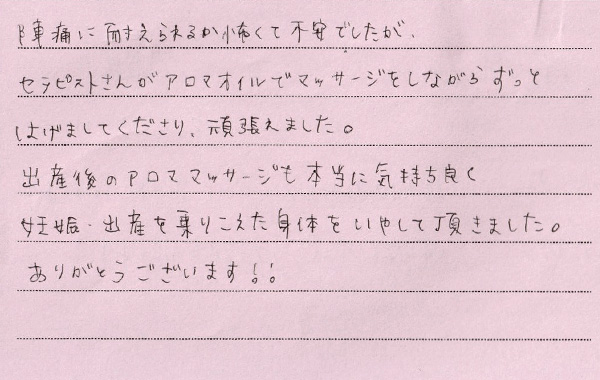 陣痛に耐えられるか怖くて不安でしたが、
セラピストさんがアロマオイルでマッサージをしながらずっと
はげましてくださり、頑張えました。
出産後のアロママッサージも本当に気持ち良く
妊娠・出産を乗りこえた身体をいやして頂きました。
ありがとうございます!!